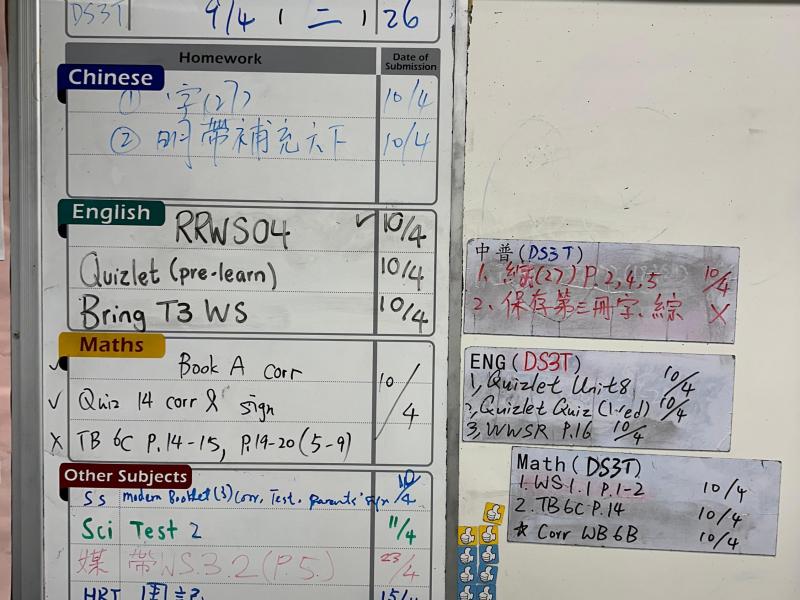 DS3T 9/4 | 二 | 26
Homework Date of Submission
Chinese
① 字(27) 10/4
② 明帶補充六下 10/4
English
RRWS04 ✓ 10/4
Quizlet (pre-learn) 10/4
Bring T3 WS 10/4
Maths
✓ Book A corr 10/4
✓ Quiz 14 corr & sign
X TB 6C P.14-15, P.19-20 (5-9)
Other Subjects
SS modern Booklet(3) corr, Test, parents' sign 10/4
Sci Test 2 11/4
媒 帶WS.3.2(P.5.) 23/4
HRT 15/4
中普(DS3T)
1. 綜(27) P.2,4,5 10/4
2. 保存第三冊字、綜 X
ENG (DS3T)
1, Quizlet Unit8 10/4
2, Quizlet Quiz (1-red) 10/4
3, WWSR P.16 10/4
Math (DS3T)
1. WS1.1 P.1-2 10/4
2. TB6C P.14 10/4
* Corr WB6B 10/4